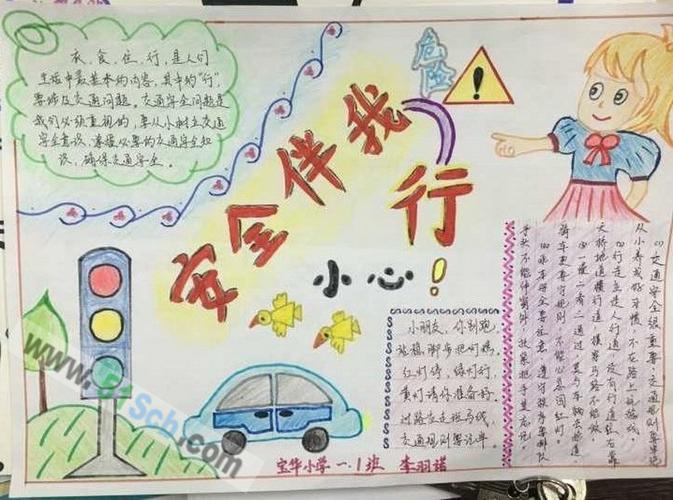 衣、食、住、行,是人们
生活中最基本的内容,其中的"行"
要涉及交通问题。交通安全问题是
我们必须重视的,要从小树立交通
安全意识、掌握必要的交通安全知
识,确保交通安全。
危险
!
安全伴我行
小心!
小朋友,你别跑,
站稳脚步把灯瞧,
红灯停,绿灯行,
黄灯请你准备好,
过路应走斑马线,
交通规则要记牢。
(1)交通安全很重要,交通规则要牢记
从小养成好习惯,不在路上玩游戏。
(2)行走应走人行道,没有行道往右靠
天桥地道横行道,横穿马路不能做
(3)一慢二看三通过,莫与车辆去抢道。
骑车更要守规则,不能心急闯红灯。
(4)乘车安全要注意,遵守秩序要排队
手头不能伸窗外,扶紧把手莫忘记。
宝华小学一.1班 李羽诺
www.GTSch.com